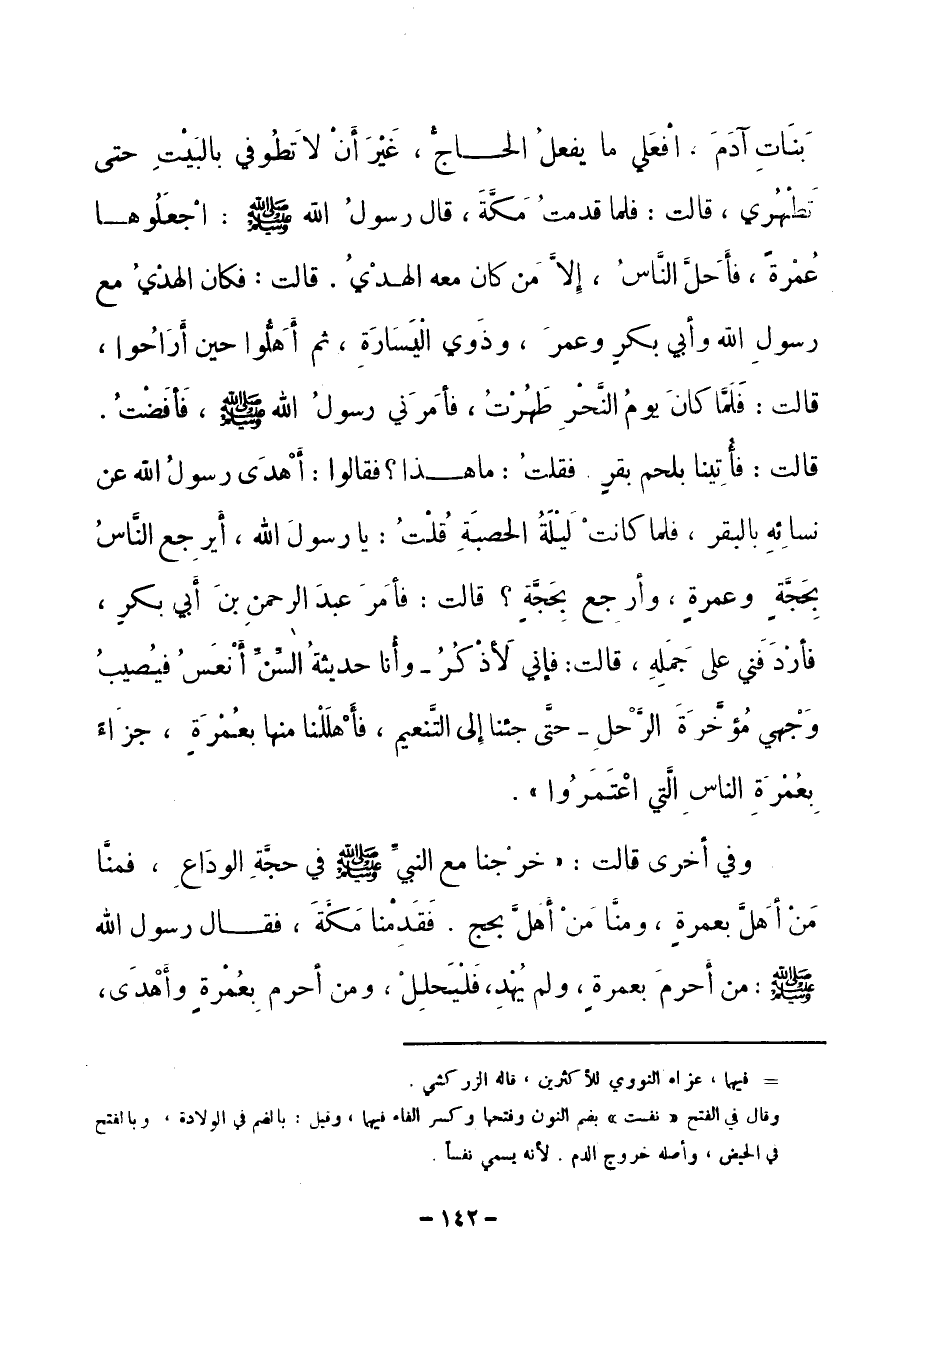 بَنَاتِ آدَمَ ، افْعَلي ما يفعلُ الحـــاجُّ ، غَيْرَ أَنْ لاَ تَطُوفي بالبَيْتِ حتى
تَطْهُري ، قالت : فلما قدمتُ مَكَّةَ ، قال رسولُ الله ﷺ : اجْعَلُوهــا
عُمْرةً ، فأَحَلَّ النَّاسُ ، إِلاَّ مَن كان معه الهديُ . قالت : فكان الهدْيُ مع
رسولِ الله وأبي بكرٍ وعمرَ ، وذَوي الْيَسَارَةِ ، ثم أَهَلُّوا حين أَرَاحُوا ،
قالت : فَلَمَّا كانَ يومُ النَّحْرِ طَهُرْتُ ، فأمرَني رسولُ الله ﷺ ، فَأفَضْتُ .
قالت : فأُتِينا بلحم بقرٍ . فقلتُ : ماهـــذا ؟ فقالوا : أَهْدَى رسولُ الله عن
نسائِهِ بالبقر ، فلما كانتْ لَيْلَةُ الحصبَةِ قُلْتُ : يا رسولَ الله ، أيرجع النَّاسُ
بِحَجَّةٍ وعمرةٍ ، وأرجع بِحَجَّةٍ ؟ قالت : فأمَرَ عبدَ الرحمنِ بنَ أَبي بكرٍ ،
فأرْدَفَني على جَمَلِهِ ، قالت : فإني لَأذْكُرُ ـ وأنا حديثةُ السِّنِّ أَنْعَسُ فيُصيبُ
وَجْهي مُؤَخَّرَةَ الرَّحْلِ ـ حتَّى جئنا إلى التَّنعيم ، فأَهْلَلْنا منها بعُمْرَةٍ ، جزاءً
بِعُمْرَةِ الناسِ الَّتي اعْتَمَرُوا » .
وفي أخرى قالت : « خرجْنا مع النبيِّ ﷺ في حجَّةِ الودَاعِ ، فمنَّا
مَنْ أَهَلَّ بعمرةٍ ، ومنَّا مَنْ أَهَلَّ بحج . فَقَدِمْنا مَكَّةَ ، فقـــال رسول الله
ﷺ : من أحرمَ بعمرةٍ ، ولم يُهْدِ ، فَلْيَحلِلْ ، ومن أحرم بِعُمْرةٍ وأَهْدَى ،
= فيها ، عزاه النووي للأكثرين ، قاله الزركشي .
وقال في الفتح « نفست » بضم النون وفتحها وكسر الفاء فيها ، وقيل : بالضم في الولادة ، وبالفتح
في الحيض ، وأصله خروج الدم . لأنه يسمي نفساً .
– ١٤٢ –